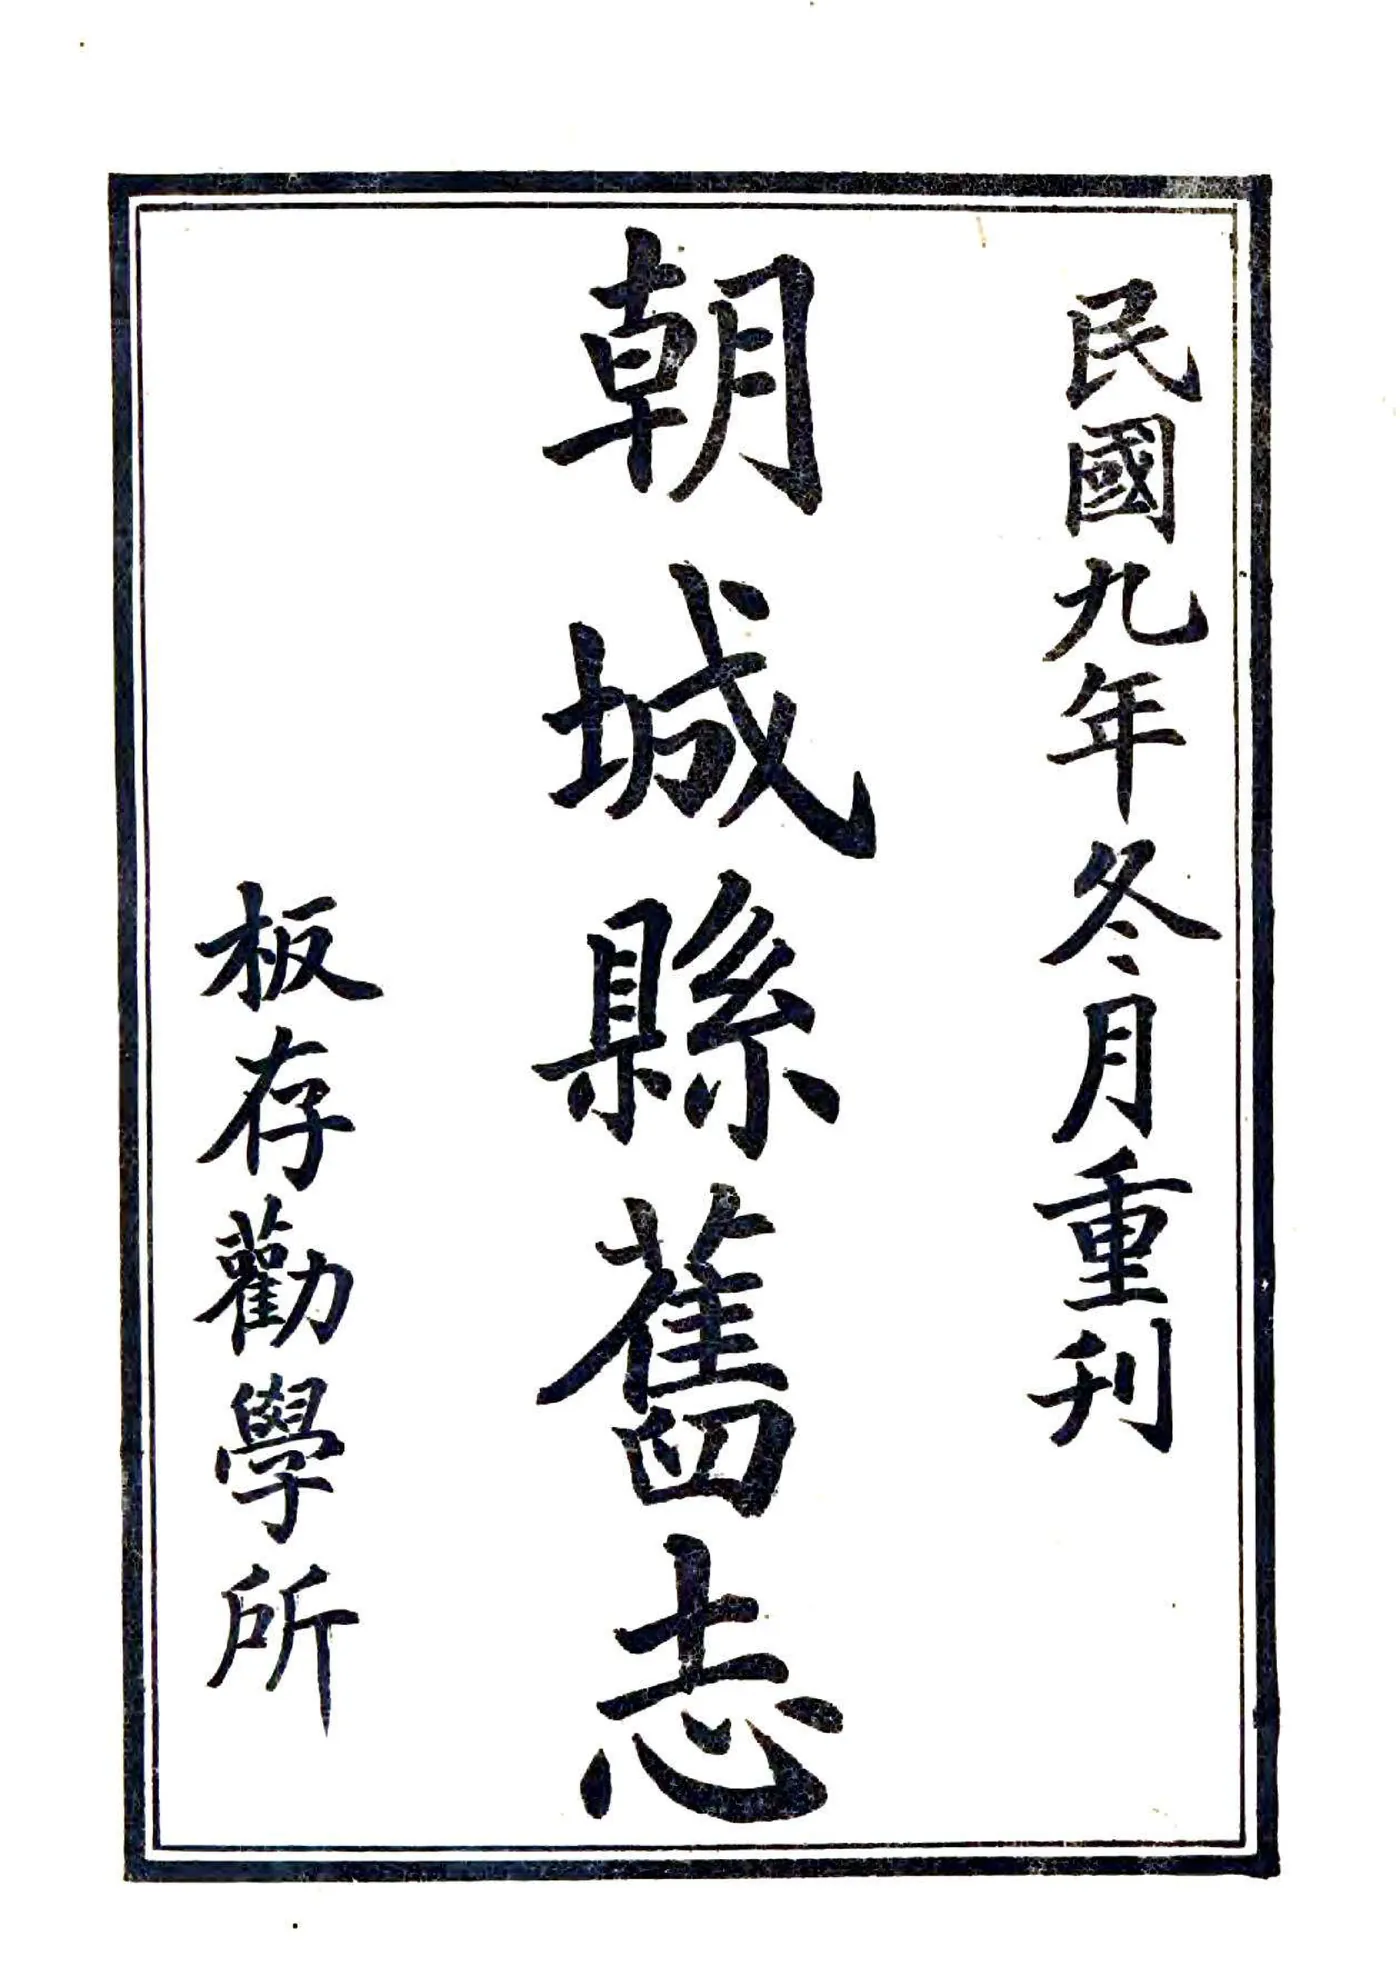 民國九年冬月重刊
朝城縣舊志
板存勸學所